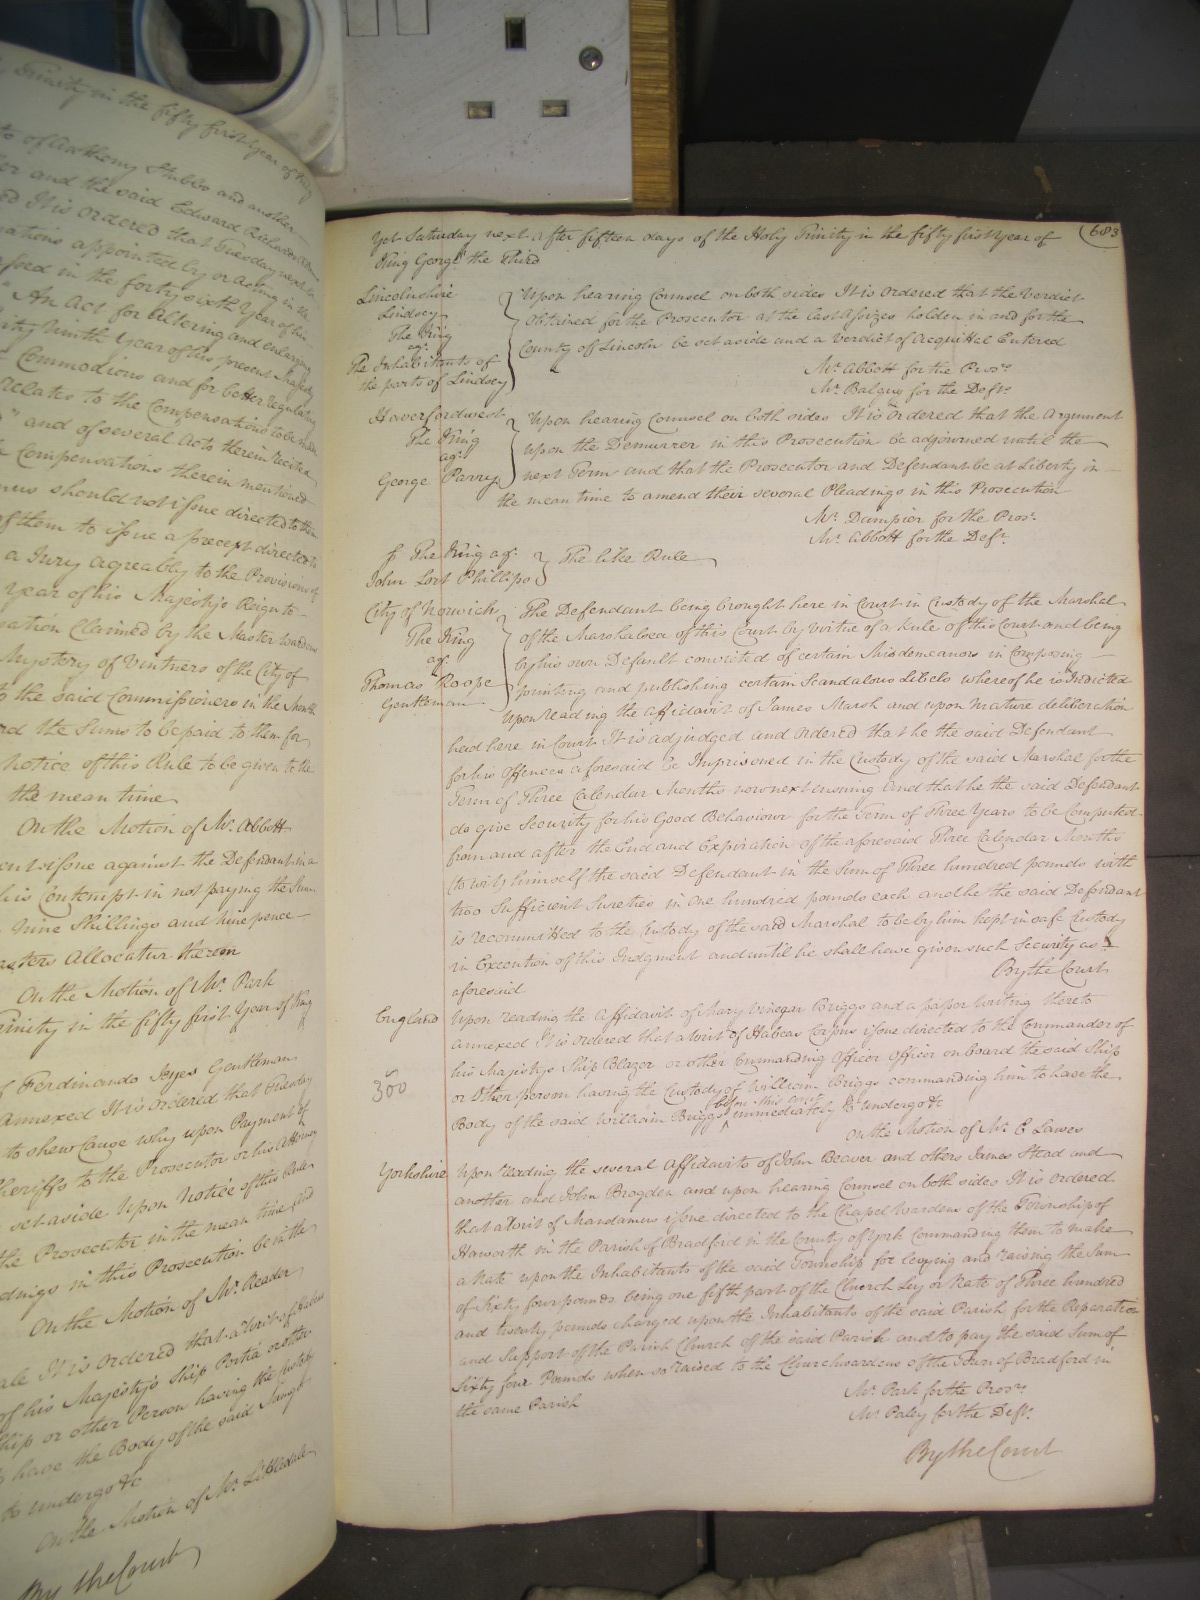 Trinity in the fifty first year of King
of Anthony Stubbs and another
and the said Edward Richardson
It is ordered that Tuesday next
appointed by or acting in the
passed in the forty sixth Year of his
"An Act for altering and enlarging
Ninth Year of his present Majesty
Commodious and for better regulating
relates to the Compensations to be made
" and of several Acts therein recited
Compensations therein mentioned
should not issue directed to them
of them to issue a precept directed to
a Jury agreably to the Provisions of
year of his Majestys Reign to
Claimed by the Master Wardens
Mystery of Vintners of the City of
to the said Commissioners in the Month
the Sums to be paid to them for
Notice of this Rule to be given to the
the mean time
On the Motion of Mr. Abbott
issue against the Defendant in a
his Contempt in not paying the Sum
Nine Shillings and nine pence
Masters Allocatur thereon
On the Motion of Mr. Park
Trinity in the fifty first Year of King
of Ferdinando Jeyes Gentleman
Annexed It is ordered that Tuesday
to shew Cause why upon Payment of
Sheriffs to the Prosecutor or his Attorney
set aside Upon Notice of this Rule
the Prosecutor in the mean time And
in this Prosecution be in the
On the Motion of Mr. Reader
It is ordered that a Writ of Habeas
of his Majestys Ship Portia or other
Ship or other Person having the Custody
to have the Body of the said
to undergo &c
On the Motion of Mr. Littledale
By the Court
683
Yet Saturday next after fifteen days of the Holy Trinity in the fifty first Year of
King George the Third
Lincolnshire
Lindsey
The King
agt.
The Inhabitants of
the parts of Lindsey
Upon hearing Counsel on both sides It is ordered that the Verdict
obtained for the Prosecutor at the last Assizes holden in and for the
County of Lincoln be set aside and a Verdict of Acquittal Entered
Mr. Abbott for the Prosr.
Mr. Balguy for the Deft.
Haverfordwest
The King
agt.
George Parry
Upon hearing Counsel on both sides It is Ordered that the Argument
upon the Demurrer in this Prosecution be adjourned until the
next Term and that the Prosecutor and Defendant be at Liberty in
the mean time to amend their several Pleadings in this Prosecution
Mr. Dampier for the Prosr.
Mr. Abbott for the Deft.
The King agt.
John Lort Phillips
The like Rule
City of Norwich
The King
agt.
Thomas Roope
Gentleman
The Defendant being brought here in Court in Custody of the Marshal
of the Marshalsea of this Court by virtue of a Rule of this Court and being
by his own Default convicted of certain Misdemeanors in Composing
printing and publishing certain Scandalous Libels whereof he is Indicted
Upon reading the Affidavit of James Marsh and upon Mature deliberation
had here in Court It is adjudged and ordered that he the said Defendant
for his Offences aforesaid be Imprisoned in the Custody of the said Marshal for the
Term of Three Calendar Months now next ensuing and that he the said Defendant
do give Security for his Good Behaviour for the Term of Three Years to be Computed
from and after the End and Expiration of the aforesaid Three Calendar Months
(to wit) himself the said Defendant in the Sum of Three hundred pounds with
two Sufficient Sureties in One hundred pounds each and he the said Defendant
is recommitted to the Custody of the said Marshal to be by him kept in safe Custody
in Execution of this Judgment and until he shall have given such Security as
aforesaid
By the Court
England
300
Upon reading the Affidavit of Mary Vinegar Briggs and a paper writing thereto
annexed It is ordered that a Writ of Habeas Corpus issue directed to the Commander of
his Majestys Ship Blazer or other Commanding Officer Officer on board the said Ship
or other person having the Custody of William Briggs commanding him to have the
Body of the said William Briggs before this Court immediately to undergo &c
On the Motion of Mr. E Lawes
Yorkshire
Upon reading the several Affidavits of John Beaver and others James Stead and
another and John Brogden and upon hearing Counsel on both sides It is ordered
that a Writ of Mandamus issue directed to the Chapelwardens of the Township of
Haworth in the Parish of Bradford in the County of York Commanding them to make
a Rate upon the Inhabitants of the said Township for levying and raising the Sum
of Sixty four pounds being one fifth part of the Church Ley or Rate of Three hundred
and twenty pounds charged upon the Inhabitants of the said Parish for the Reparation
and Support of the Parish Church of the said Parish and to pay the said Sum of
Sixty four Pounds when so raised to the Churchwardens of the Town of Bradford in
the same Parish
Mr. Park for the Prosr.
Mr. Paley for the Deft.
By the Court